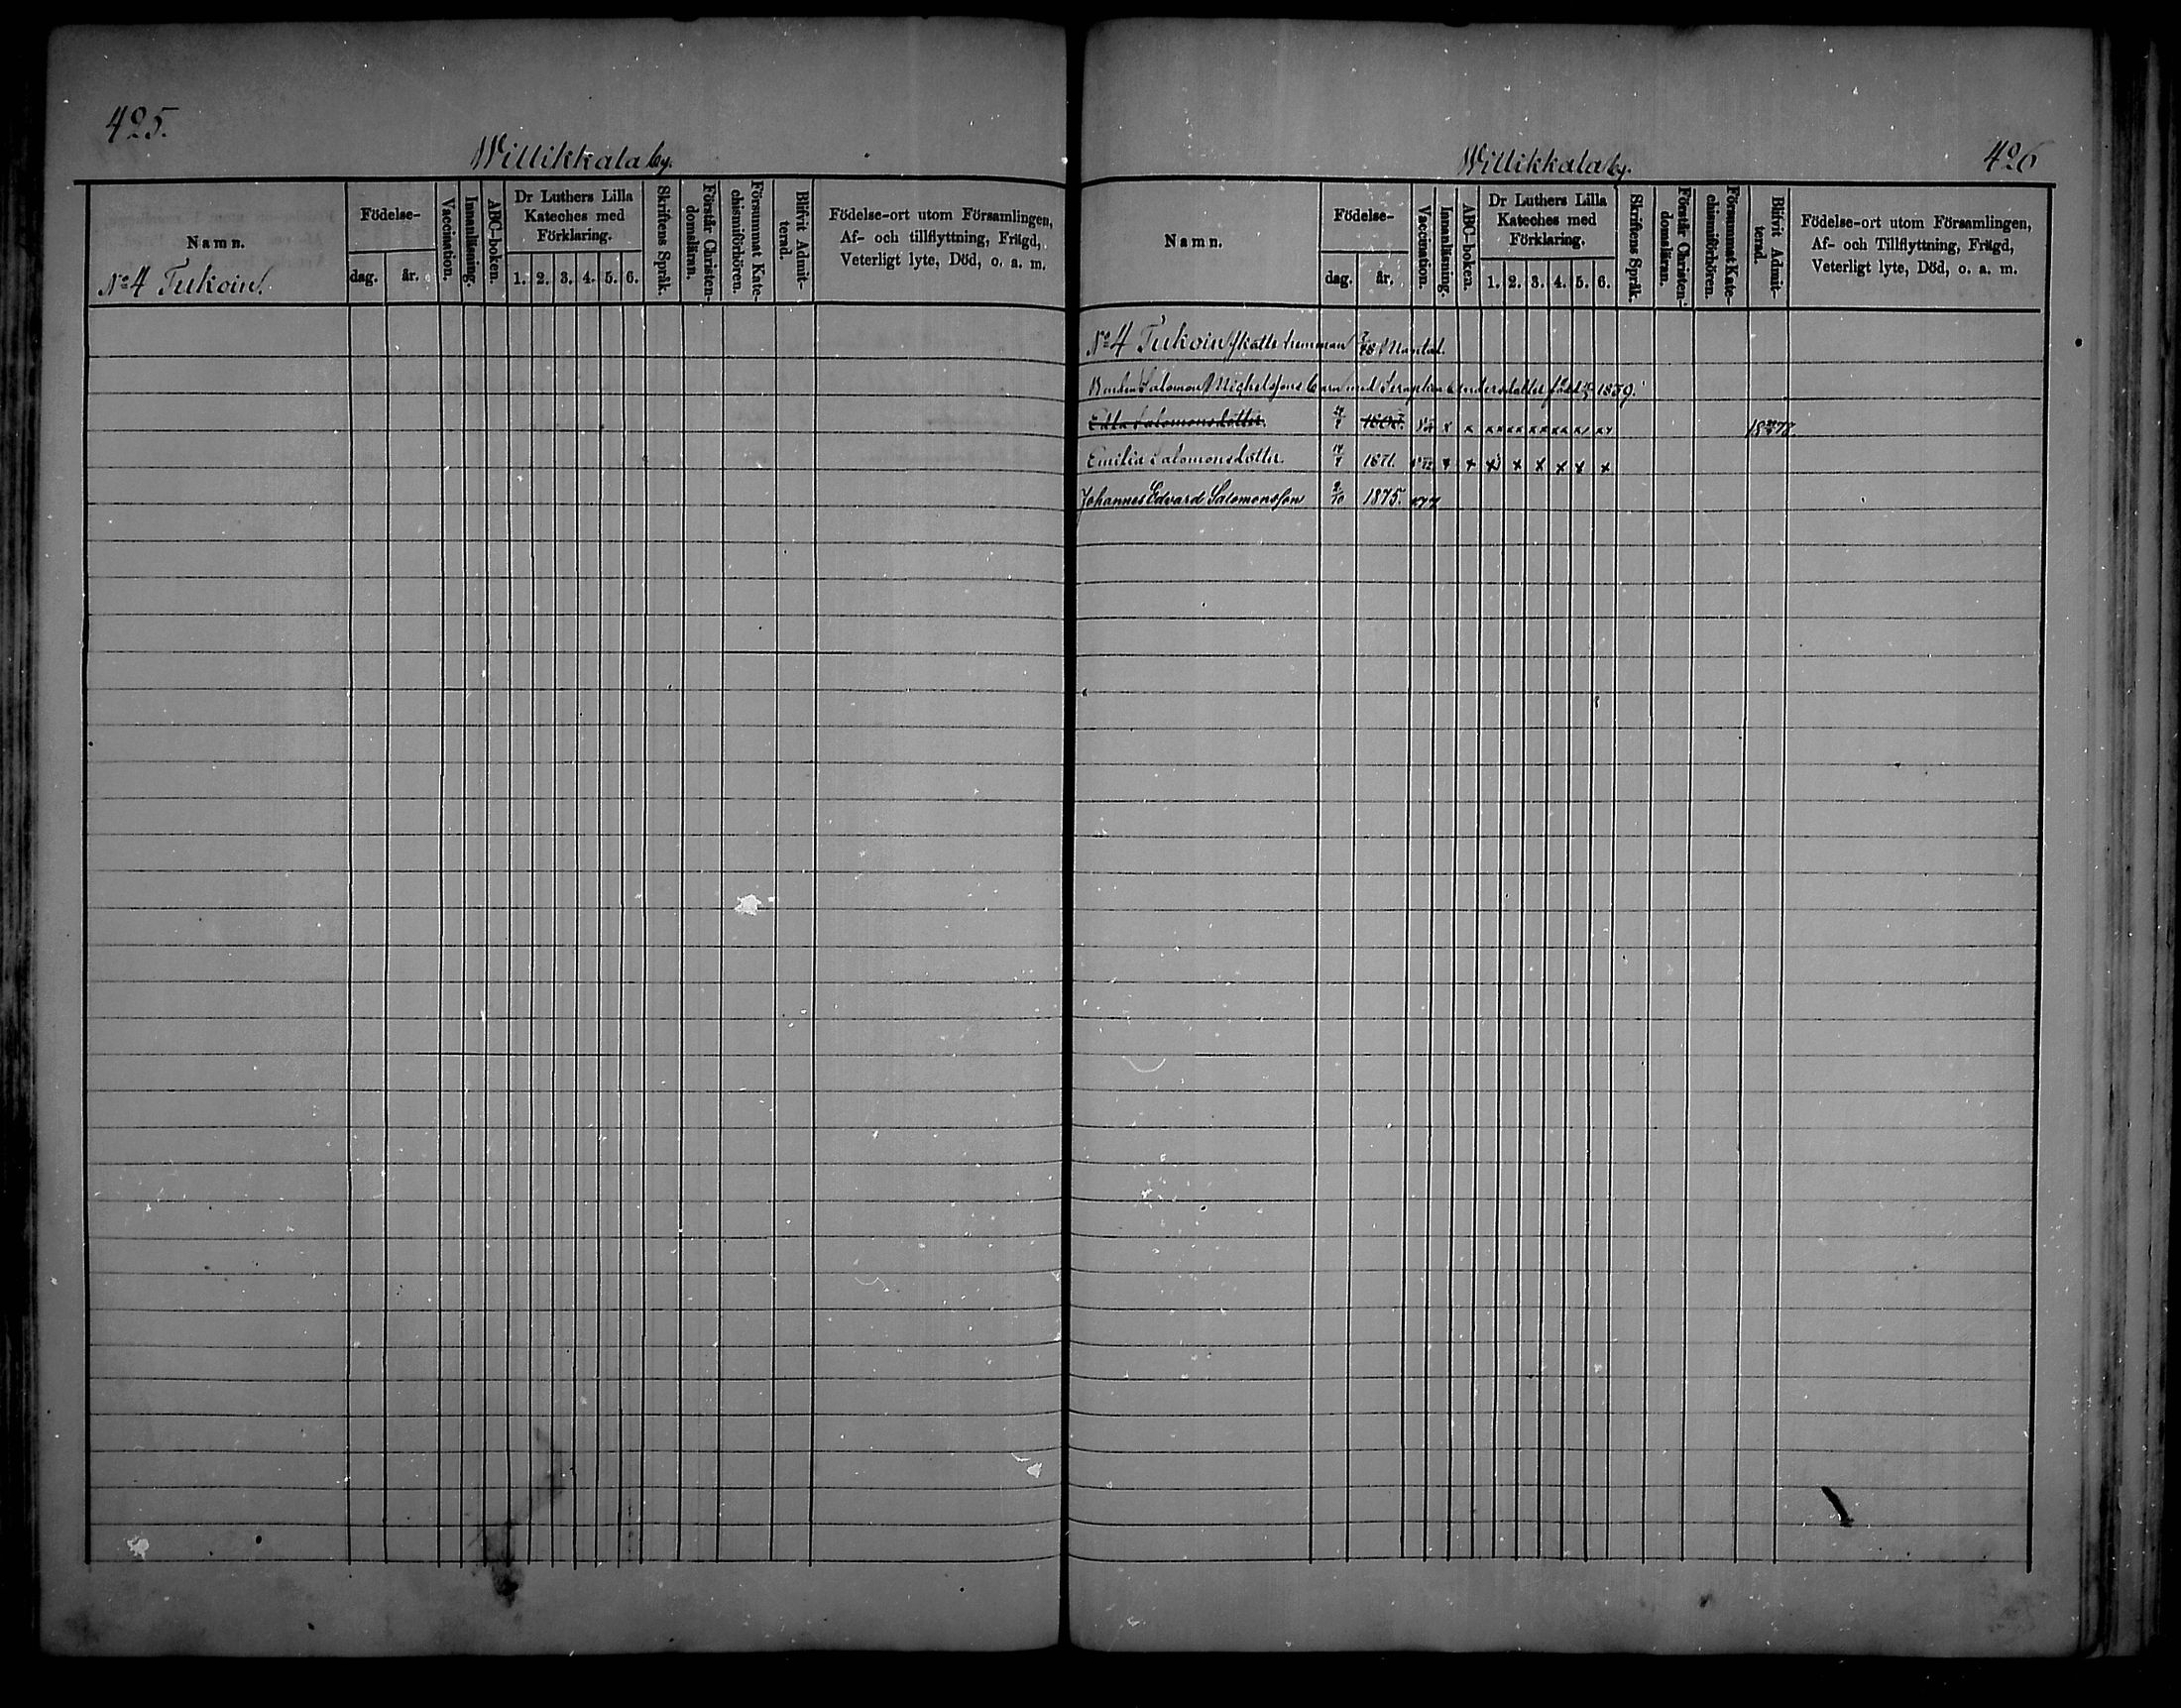 425.
Willikkala by.
Namn.
Födelse-
dag. år.
Vaccination.
Innanläsning.
ABC-boken.
Dr Luthers Lilla
Kateches med
Förklaring.
1. 2. 3. 4. 5. 6.
Skriftens Språk.
Förstår Christen-
domsläran.
Försummat Kate-
chismiförhören.
Blifvit Admit-
terad.
Födelse-ort utom Församlingen,
Af- och tillflyttning, Frägd,
Veterligt lyte, Död, o. a. m.
No 4 Tukoin.
Willikkala by.
426
Namn.
Födelse-
dag. år.
Vaccination.
Innanläsning.
ABC-boken.
Dr Luthers Lilla
Kateches med
Förklaring.
1. 2. 3. 4. 5. 6.
Skriftens Språk.
Förstår Christen-
domsläran.
Försummat Kate-
chismiförhören.
Blifvit Admit-
terad.
Födelse-ort utom Församlingen,
Af- och Tillflyttning, Frägd,
Veterligt lyte, Död, o. a. m.
No 4 Tukoin Skatte hemman Mantal.
Bonden Salomon Michelssons barn med Andersdotter född 1839.
Edla Salomonsdotter. x x x x x x x x x x x x
Emilia Salomonsdotter 1871. x x x x x x x x
Johannes Edvard Salomonsson 2/10 1875.